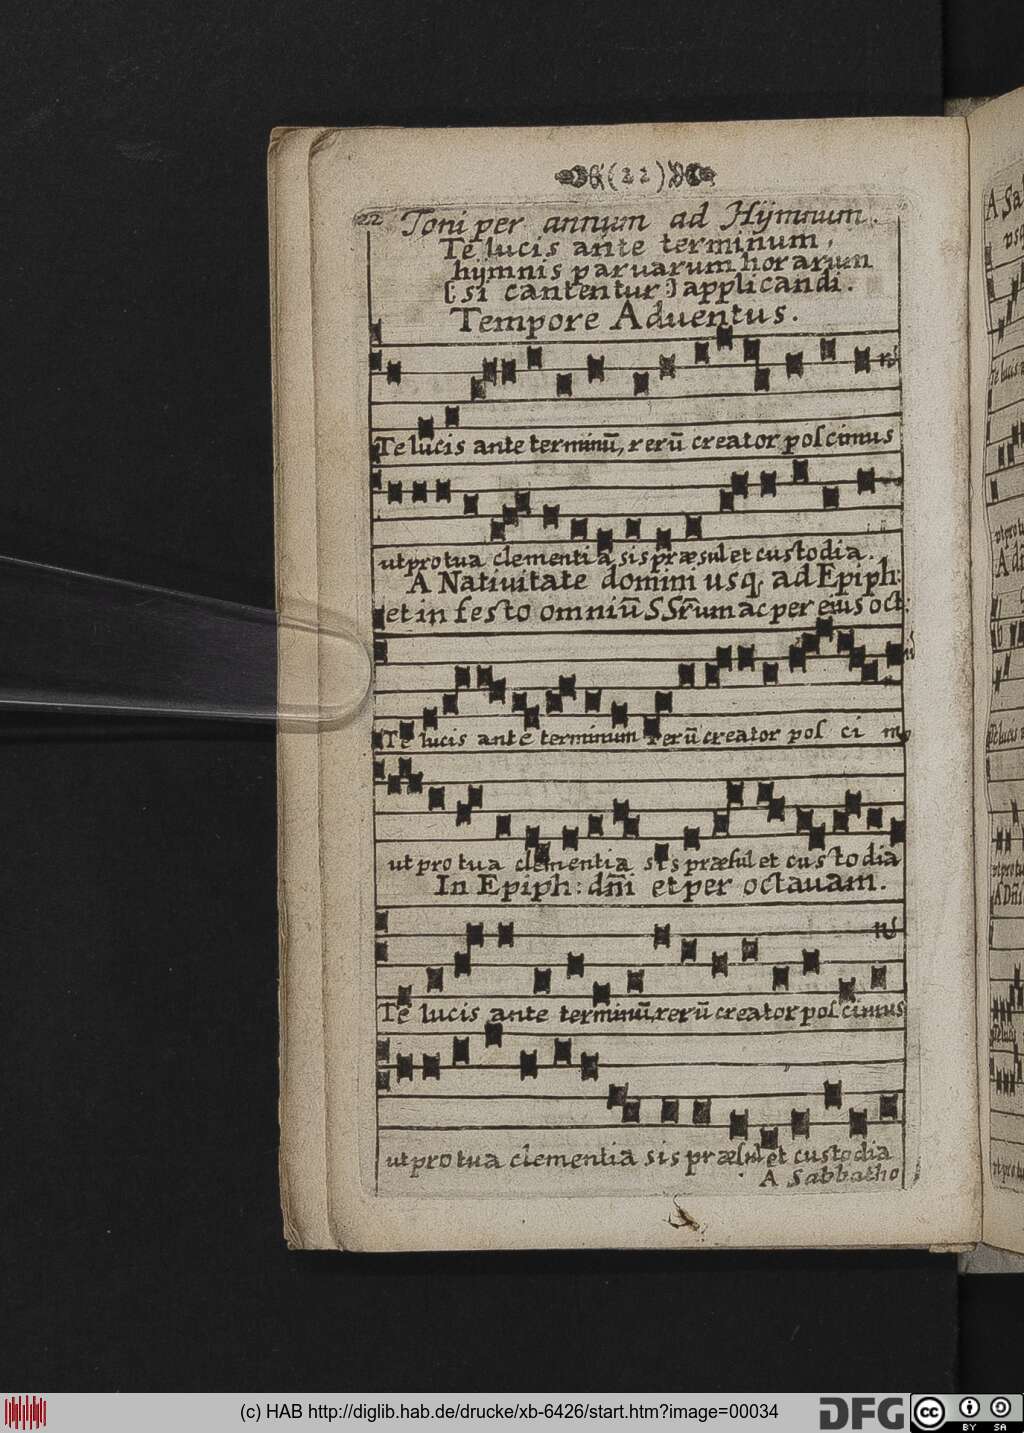 (22)
22 Toni per annum ad Hÿmnum.
Te lucis ante terminum,
hÿmnis paruarum horarum
(: si cantentur :) applicandi.
Tempore Aduentus.
Te lucis ante terminū, rerū creator pol cimus
ut pro tua clementi a sis præsul et custodia.
A Natiuitate domini usq, ad Epiph:
et in festo omniū SSrum ac per eius oct:
Te lucis ante terminum rerū creator pol ci mꝰ
ut pro tua clementia sis præsul et custodia
In Epiph: dñi et per octauam.
Te lucis ante terminū, rerū creator pol cimus
ut pro tua clementia sis præsul et custodia
A Sabbatho
(c) HAB http://diglib.hab.de/drucke/xb-6426/start.htm?image=00034
DFG
cc BY SA